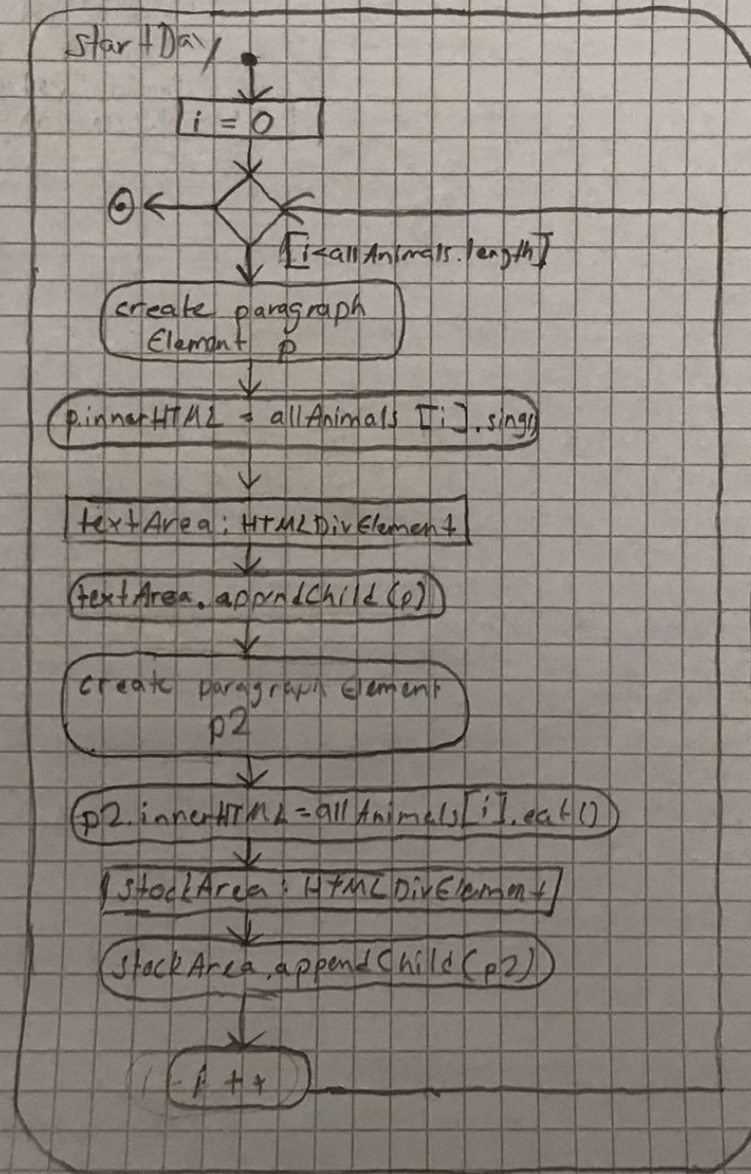 startDay
i = 0
[i<allAnimals.length]
create paragraph
Element p
p.innerHTML = allAnimals [i].sing()
textArea: HTMLDivElement
textArea.appndChild(p)
create paragraph Element
p2
p2.innerHTML = allAnimals[i].eat()
stockArea: HTMLDivElement
stockArea.appendChild(p2)
i ++